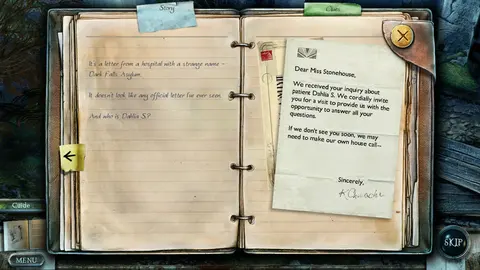 Story
Clues
It's a letter from a hospital with a strange name -
Dark Falls Asylum.
It doesn't look like any official letter I've ever seen.
And who is Dahlia S.?
Dear Miss Stonehouse,
We received your inquiry about
patient Dahlia S. We cordially invite
you for a visit to provide us with the
opportunity to answer all your
questions.
If we don't see you soon, we may
need to make our own house call...
Sincerely,
Guide
MENU
SKIP